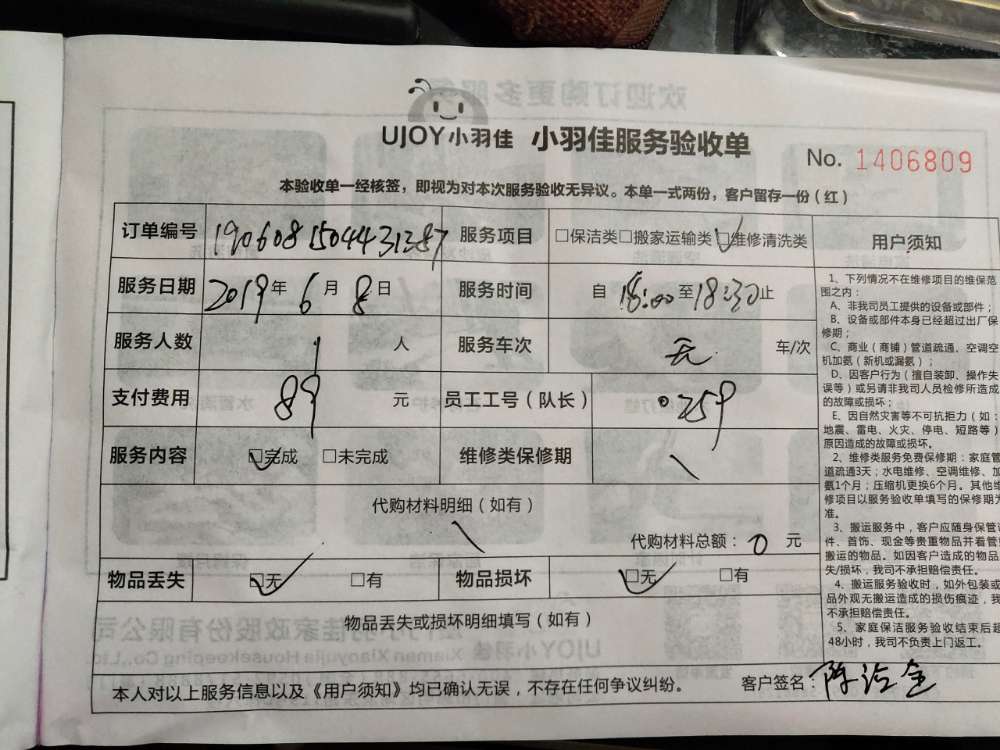 UJOY小羽佳 小羽佳服务验收单
No. 1406809
本验收单一经核签，即视为对本次服务验收无异议。本单一式两份，客户留存一份（红）
订单编号 1906081504431387 服务项目 □保洁类□搬家运输类□维修清洗类
服务日期 2019年 6月 8日 服务时间 自 18:00至18:30止
服务人数 1 人 服务车次 无 车/次
支付费用 89 元 员工工号（队长） 0259
服务内容 □完成 □未完成 维修类保修期 \
代购材料明细（如有）
\
代购材料总额：0 元
物品丢失 □无 □有 物品损坏 □无 □有
物品丢失或损坏明细填写（如有）
本人对以上服务信息以及《用户须知》均已确认无误，不存在任何争议纠纷。 客户签名：陈
用户须知
1、下列情况不在维修项目的维保范
围之内：
A、非我司员工提供的设备或部件；
B、设备或部件本身已经超过出厂保
修期；
C、商业（商铺）管道疏通、空调空
机加氨（新机或漏氨）；
D、因客户行为（擅自装卸、操作失
误等）或另请非我司人员检修所造成
的故障或损坏；
E、因自然灾害等不可抗拒力（如：
地震、雷电、火灾、停电、短路等）
原因造成的故障或损坏。
2、维修类服务免费保修期：家庭管
道疏通3天；水电维修、空调维修、加
氨1个月；压缩机更换6个月。其他维
修项目以服务验收单填写的保修期为
准。
3、搬运服务中，客户应随身保管证
件、首饰、现金等贵重物品并看管
搬运的物品。如因客户造成的物品
失/损坏，我司不承担赔偿责任。
4、搬运服务验收时，如外包装或
品外观无搬运造成的损伤痕迹，我
不承担赔偿责任。
5、家庭保洁服务验收结束后超
48小时，我司不负责上门返工。